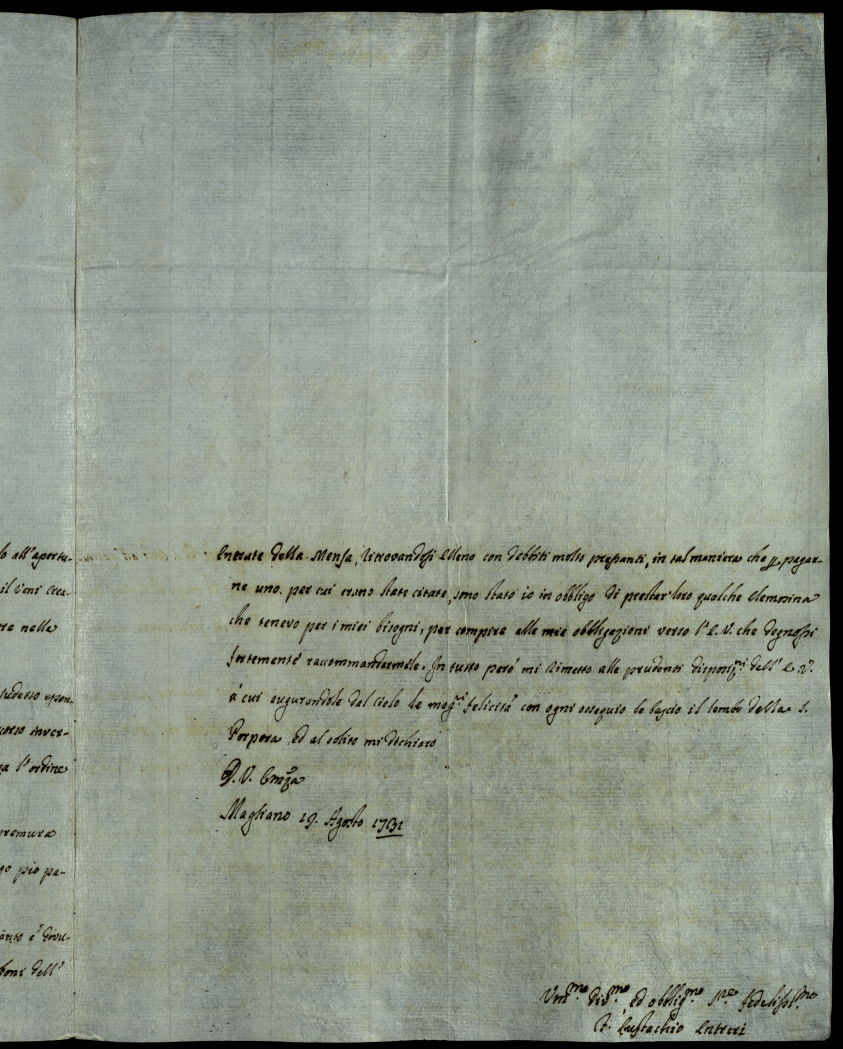 lo all'apertu-
il Veni Crea-
re nella
sudetto spon-
corso inver-
za l'ordine
premura
go pio pa-
anto è dovu-
sioni dell'
Entrate della Mensa, ritrovandosi elleno con debbiti molto pressanti, in tal maniera che p pagar-
ne uno. per cui erano state citate, sono stato io in obbligo di prestar loro qualche elemosina
che tenevo per i miei bisogni, per compire alle mie obbligazioni verso l'E.V. che degnossi
fortemente raccommandarmele. In tutto però mi rimetto alle prudenti disposiz.ni dell'E.V.
a cui augurandole dal Cielo le mag.ri felicità con ogni ossequio le bascio il lembo della S.
Porpora, ed al solito mi dechiaro
D. V. Em.za
Magliano 19. Agosto 1731
Um.mo div.mo ed obblig.mo s.re fedeliss.mo
F. Eustachio Entreri